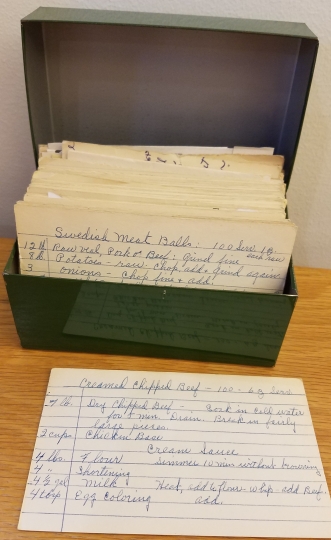 Swedish Meat Balls: 100 Serv.
12 lb Raw veal, Pork or Beef: Grind fine
8 lb Potatoes - raw - chop, add + grind again
3 onions - chop fine + add.
Creamed Chipped Beef - 100 - Serv
7 lb. Dry Chipped Beef - Cook in cold water
for 5 min. Drain. Break in fairly
large pieces.
2 cups Chicken Base
Cream Sauce
4 lbs Flour Simmer 10 min without browning
4 - Shortening
4 1/2 gal Milk Heat, add to flour whip. add Beef.
4 tbsp Egg Coloring add.